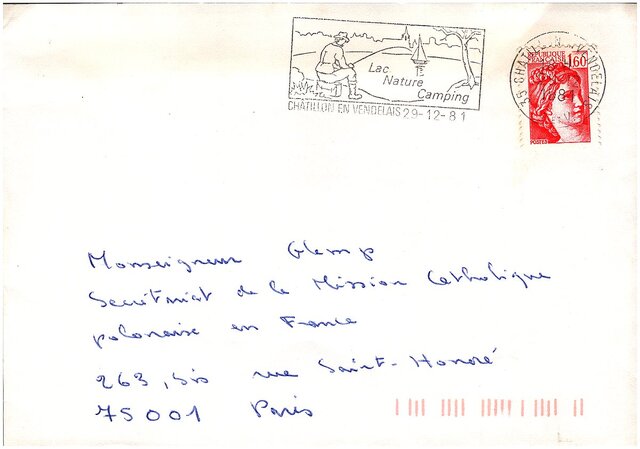 Lac
Nature
Camping
CHATILLON EN VENDELAIS 29-12-81
35 CHATILLON VENDELAIS
81
REPUBLIQUE
FRANÇAISE
1,60
POSTES
Monseigneur Glemp
Secrétariat de la Mission Catholique
polonaise en France
263, bis rue Saint-Honoré
75001 Paris